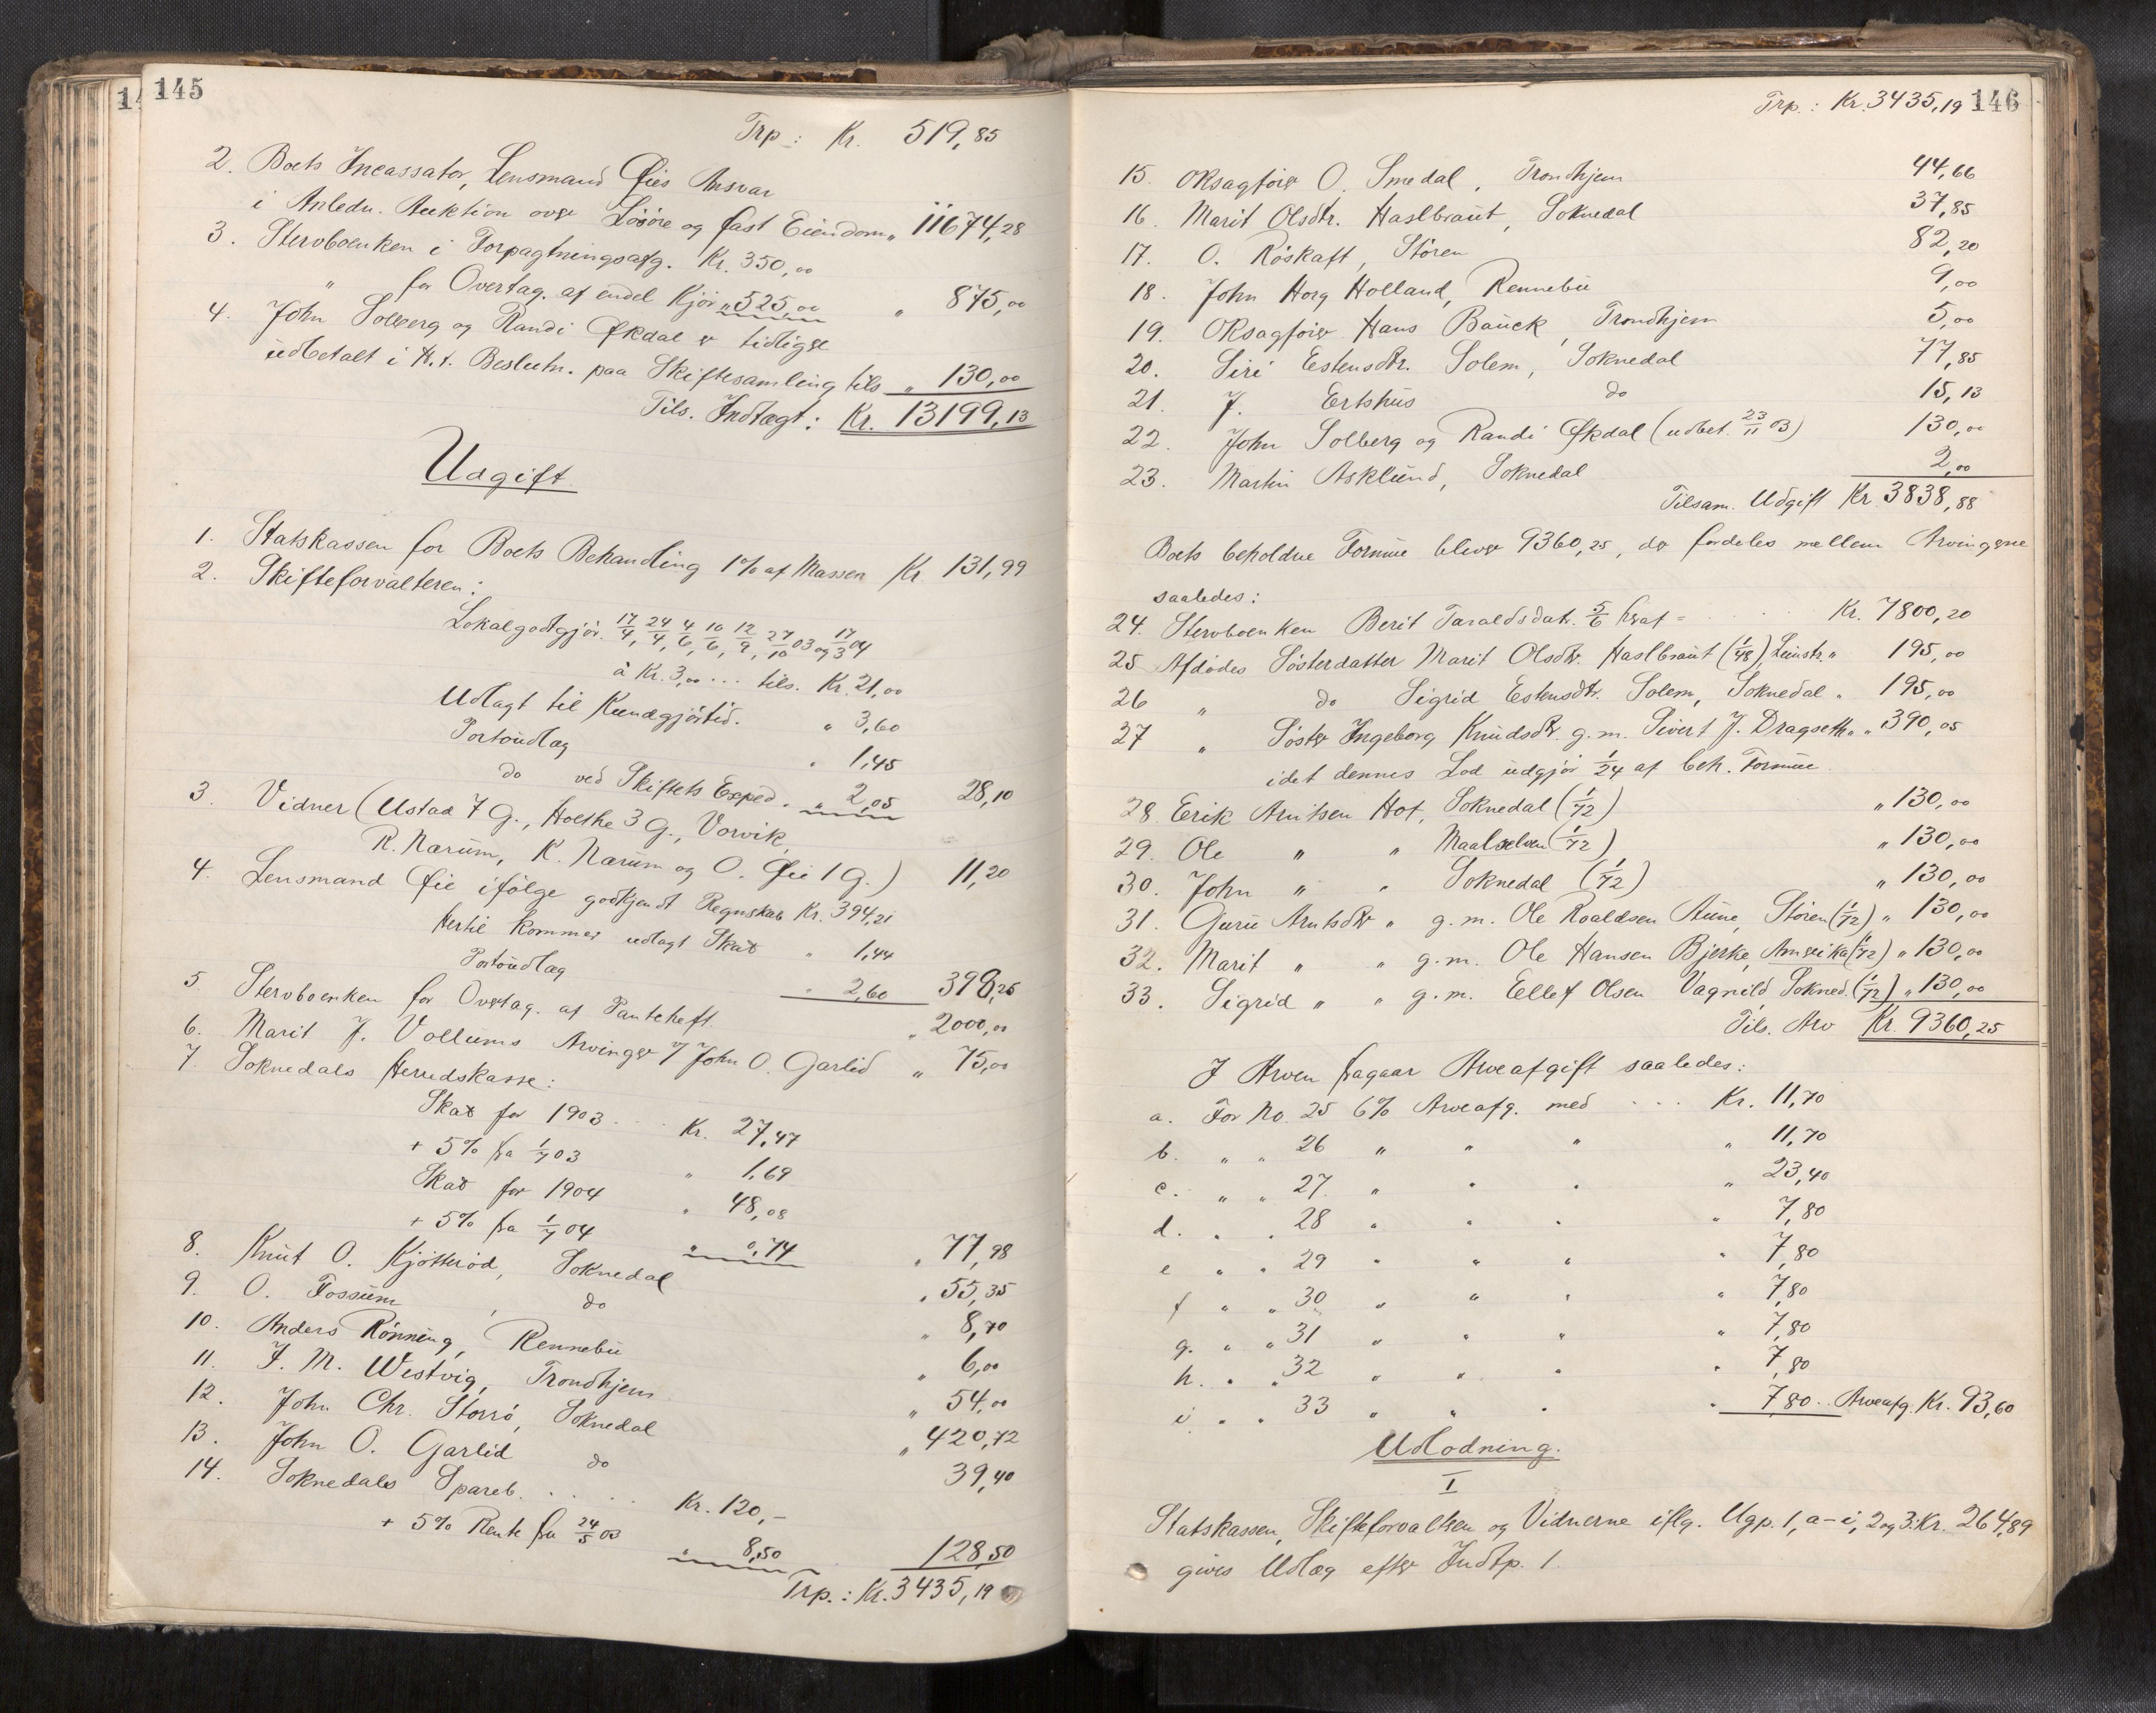 145
Trp.: Kr. 519,85
2. Boets Incassator, Lensmand Øies Ansvar
i Anledn. Auktion over Løsøre og fast Eiendom „ 11674,28
3. Stervboenken i Forpagtningsafg. Kr. 350,00
„ for Overtag. af endel Kjør „ 525,00 „ 875,00
4. John Solberg og Randi Økdal er tidligere
udbetalt i H.t. Beslutn. paa Skiftesamling tils „ 130,00
Tils. Indtægt: Kr. 13199,13
Udgift
1. Statskassen for Boets Behandling 1% af Massen Kr. 131,99
2. Skifteforvalteren:
Lokalgodtgjør. 17/4, 24/4, 4/6, 16/6, 12/9, 27/10 03 og 17/3 04
à Kr. 3,00 ... tils. Kr. 21,00
Udlagt til Kundgjørtid. „ 3,60
Portoudlæg „ 1,45
do ved Skiftets Exped. „ 2,05 28,10
3. Vidner (Ustad 7 G., Holthe 3 G., Vorvik,
R. Nærum, K. Nærum og O. Øie 1 G.) 11,20
4. Lensmand Øie ifølge godkjendt Regnskab Kr. 394,21
hertil kommer udlagt Skat „ 1,44
Portoudlæg „ 2,60 398,25
5. Stervboenken for Overtag. af Panteheft. „ 2000,00
6. Marit J. Vollums Arvinger v/ John O. Garlid „ 75,00
7. Soknedals Herredskasse:
Skat for 1903 .... Kr. 27,47
+ 5% fra 1/7 03 „ 1,69
Skat for 1904 „ 48,08
+ 5% fra 1/7 04 „ 0,74 „ 77,98
8. Knut O. Kjøtterød, Soknedal „ 55,35
9. O. Fossum, do „ 8,70
10. Anders Rønning, Rennebu „ 6,00
11. J. M. Westvig, Trondhjem „ 54,00
12. John Chr. Storrø, Soknedal „ 420,72
13. John O. Garlid do 39,40
14. Soknedals Spareb. .... Kr. 120,-
+ 5% Rente fra 24/5 03 „ 8,50 128,50
Trp.: Kr. 3435,19
146
Trp.: Kr. 3435,19
15. Oksagfører O. Smedal, Trondhjem 44,66
16. Marit Olsdtr. Haslbraut, Soknedal 37,85
17. O. Röskaft, Støren 82,20
18. John Horg Holland, Rennebu 9,00
19. Oksagfører Hans Bauck, Trondhjem 5,00
20. Siri Estensdtr. Solem, Soknedal 77,85
21. J. Ertshus do 15,13
22. John Solberg og Randi Økdal (udbet. 23/11 03) 130,00
23. Martin Asklund, Soknedal 2,00
Tilsam. Udgift Kr. 3838,88
Boets beholdne Formue bliver 9360,25, der fordeles mellem Arvingerne
saaledes:
24. Stervboenken Berit Taraldsdatr. 5/6 heraf = ... Kr. 7800,20
25 Afdødes Søsterdatter Marit Olsdtr. Haslbraut (1/48), Leinstr. „ 195,00
26 „ do Sigrid Estensdtr. Solem, Soknedal „ 195,00
27 „ Søster Ingeborg Knudsdtr g.m. Sivert J. Dragseth „ „ 390,05
idet dennes Lod udgjør 1/24 af beh. Formue
28. Erik Arntsen Hof, Soknedal (1/72) „ 130,00
29. Ole „ „ Maalselven (1/72) „ 130,00
30. John „ „ Soknedal (1/72) „ 130,00
31. Guru Arntsdtr „ g.m. Ole Roaldsen Aune, Støren (1/72) „ 130,00
32. Marit „ „ g.m. Ole Hansen Bjerke, Amerika (1/72) „ 130,00
33. Sigrid „ „ g.m. Ellef Olsen Vagnild, Sokned. (1/72) „ 130,00
Tils. Arv Kr. 9360,25
I Arven fragaar Arveafgift saaledes:
a. For No. 25 6% Arveafg. med ... Kr. 11,70
b. „ „ 26 „ „ „ „ 11,70
c. „ „ 27 „ „ „ „ 23,40
d. „ „ 28 „ „ „ „ 7,80
e „ „ 29 „ „ „ „ 7,80
f „ „ 30 „ „ „ „ 7,80
g. „ „ 31 „ „ „ „ 7,80
h. „ „ 32 „ „ „ „ 7,80
i „ „ 33 „ „ „ „ 7,80 .. Arveafg. Kr. 93,60
Udlodning.
I
Statskassen, Skifteforvalteren og Vidnerne iflg. Ugp. 1, a-i, 2 og 3: Kr. 264,89
gives Udlæg efter Indtp. 1.